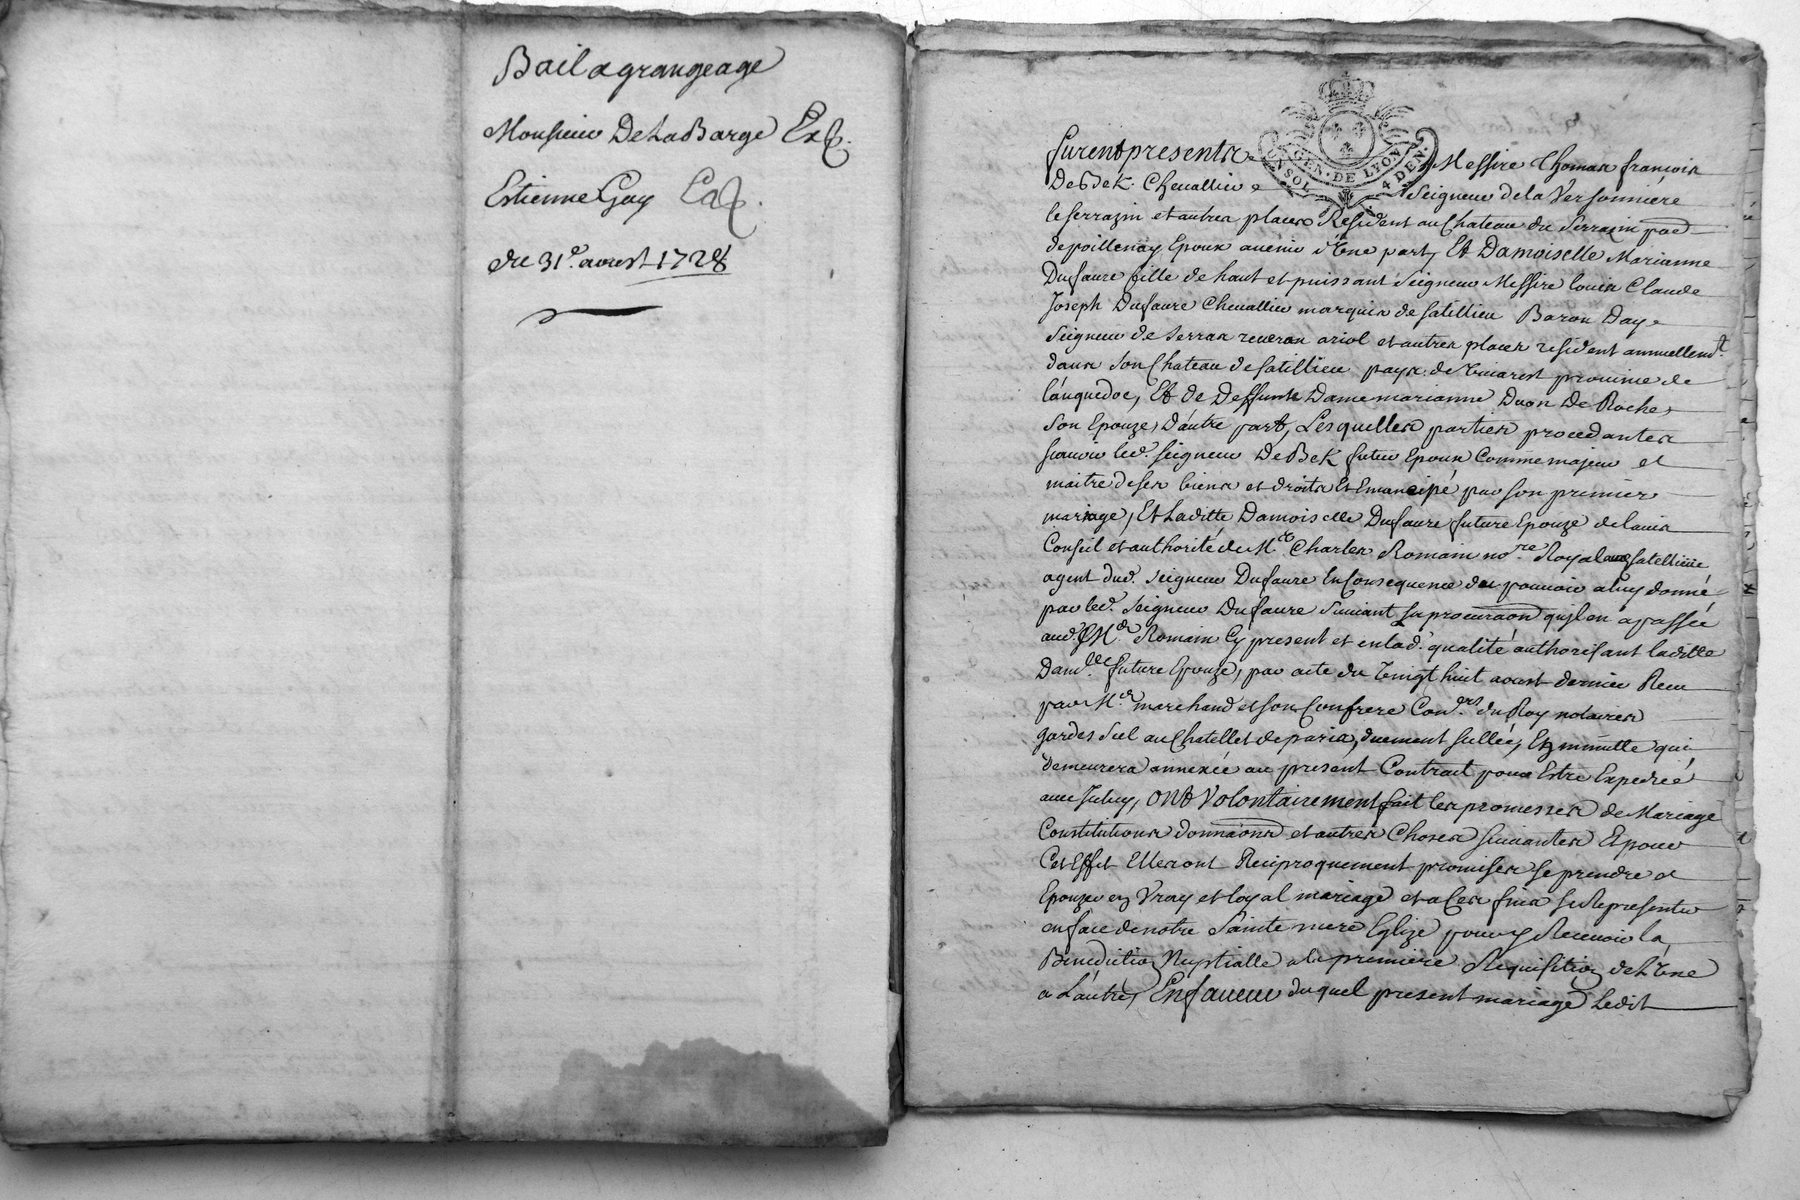 Bail a grangeage
Monsieur De La Barge
Estienne Gay
du 31e. aoust 1728
GEN · DE LYON
UN SOL 4 DEN.
furent presents Messire Thomas françois
De Bek. Chevallier Seigneur de la Versonniere
le serrazin et autres places Resident au Chateau du Serrazin par
de poillenay Epoux avenir d'Une part, Et Damoiselle Marianne
Dufaure fille de haut et puissant Seigneur Messire louis Claude
Joseph Dufaure Chevallier marquis de satillieu Baron Day
Seigneur de serras reveran ariol et autres places resident annuellemt.
dans son Chateau de satillieu pays de vivarest province de
languedoc, Et de Deffunte Dame marianne Duon De Roche
son Epouze, D'autre part, Lesquelles parties procedantes
scavoir led. seigneur De Bek futur Epoux Comme majeur et
maitre de ses biens et droits Et Emancipé par son premier
mariage, Et Laditte Damoiselle Dufaure future Epouze de lavis
Conseil et authorité de Me. Charles Romain nore. Royal satellieu
agent dud. seigneur Dufaure En Consequence du pouvoir a luy donné
par led. seigneur Dufaure suivant sa procuraon qu'il en a passée
aud. Me. Romain Cy present et en lad. qualité authorisant laditte
Damlle. future Epouze, par acte du Vingt huit aoust dernier Receu
par Me. marchand et son Confrere Coners. du Roy notaires
gardes scel au Chatellet de paris, duement scellée, En minutte qui
demeurera annexée au present Contrat pour Estre Expedié
avec Iceluy, ONt Volontairement fait les promesses de Mariage
Constitutions donnaons et autres Choses suivantes Et pour
Cet Effet Elles ont Reciproquement promises se prendre et
Epouzer en Vray et loyal mariage et a Ces fins se Representer
en face de notre Sainte mere Eglize pour y Recevoir la
Benediction Nuptialle a la premiere Requisition de L'Une
a L'autre, En faveur duquel present mariage Ledit